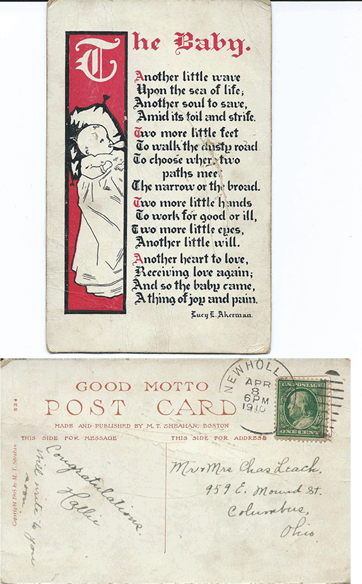 The Baby.
Another little wave
Upon the sea of life;
Another soul to save,
Amid its toil and strife.
Two more little feet
To walk the dusty road
To choose where two
paths meet
The narrow or the broad.
Two more little hands
To work for good or ill,
Two more little eyes,
Another little will.
Another heart to love,
Receiving love again;
And so the baby came,
A thing of joy and pain.
Lucy E. Akerman.
GOOD MOTTO
POST CARD
MADE AND PUBLISHED BY M. T. SHEAHAN, BOSTON
THIS SIDE FOR MESSAGE
THIS SIDE FOR ADDRESS
NEWHOLL
APR
8
6PM
1910
U.S. POSTAGE
ONE CENT
Congratulations.
Hallie
Will write to you
soon.
Mr & Mrs Chas Leach.
959 E. Mound St.
Columbus,
Ohio.
Copyright by M. T. Sheahan